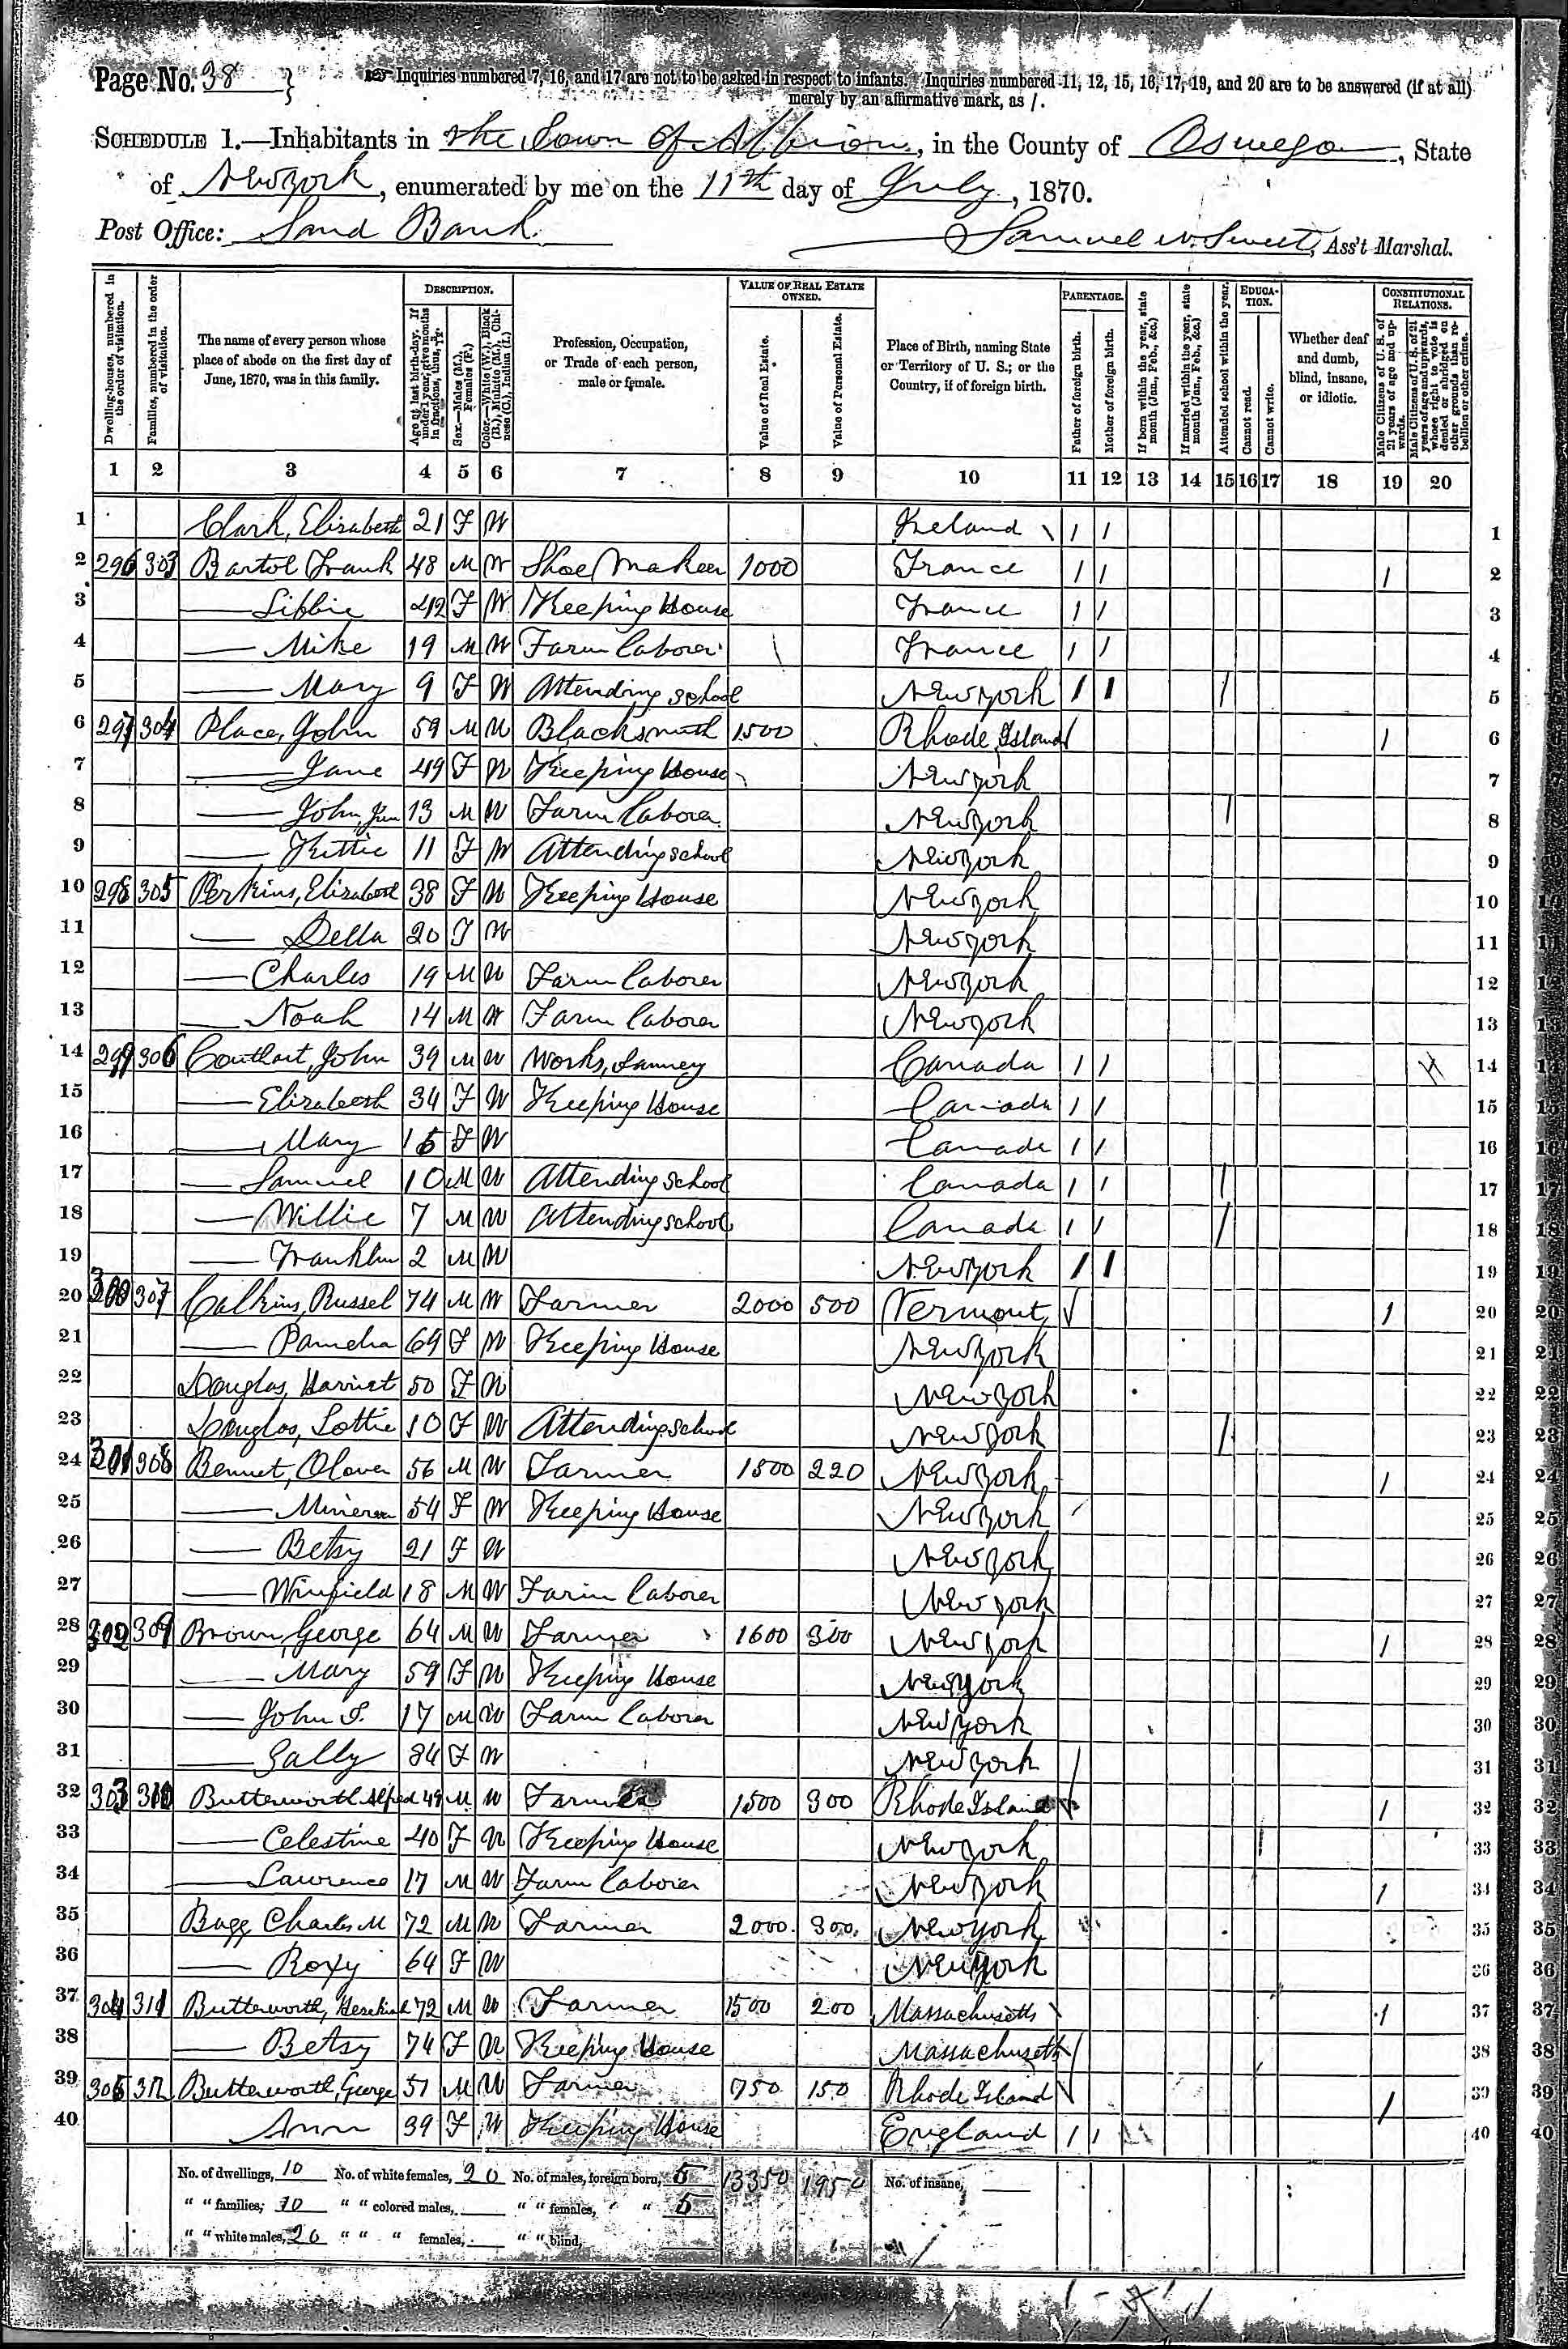 Page No. 38 } Inquiries numbered 7, 16, and 17 are not to be asked in respect to infants. Inquiries numbered 11, 12, 15, 16, 17, 19, and 20 are to be answered (if at all)
merely by an affirmative mark, as /.
SCHEDULE 1.—Inhabitants in the Town of Albion, in the County of Oswego, State
of New York, enumerated by me on the 11th day of July, 1870.
Post Office: Sand Bank
Samuel W. Sweet, Ass't Marshal.
Dwelling-houses, numbered in the order of visitation.
Families, numbered in the order of visitation.
The name of every person whose place of abode on the first day of June, 1870, was in this family.
DESCRIPTION.
Age at last birth-day. If under 1 year, give months in fractions, thus,
Sex.—Males (M.), Females (F.)
Color.—White (W.), Black (B.), Mulatto (M.), Chinese (C.), Indian (I.)
Profession, Occupation, or Trade of each person, male or female.
VALUE OF REAL ESTATE OWNED.
Value of Real Estate.
Value of Personal Estate.
Place of Birth, naming State or Territory of U. S.; or the Country, if of foreign birth.
PARENTAGE.
Father of foreign birth.
Mother of foreign birth.
If born within the year, state month (Jan., Feb., &c.)
If married within the year, state month (Jan., Feb., &c.)
Attended school within the year.
EDUCATION.
Cannot read.
Cannot write.
Whether deaf and dumb, blind, insane, or idiotic.
CONSTITUTIONAL RELATIONS.
Male Citizens of U. S. of 21 years of age and upwards.
Male Citizens of U. S. of 21 years of age and upwards, whose right to vote is denied or abridged on other grounds than rebellion or other crime.
1 2 3 4 5 6 7 8 9 10 11 12 13 14 15 16 17 18 19 20
1 Clark, Elizabeth 21 F W Ireland / / 1
2 296 303 Bartol Frank 48 M W Shoe Maker 1000 France / / / 2
3 — Libbie 42 F W Keeping House France / / 3
4 — Mike 19 M W Farm laborer France / / 4
5 — Mary 9 F W Attending school New York / / / 5
6 297 304 Place, John 59 M W Blacksmith 1500 Rhode Island / 6
7 — Jane 49 F W Keeping House New York 7
8 — John, Jun 13 M W Farm laborer New York / 8
9 — Kittie 11 F W Attending school New York 9
10 298 305 Perkins, Elizabeth 38 F W Keeping House New York 10
11 — Della 20 F W New York 11
12 — Charles 19 M W Farm laborer New York 12
13 — Noah 14 M W Farm laborer New York 13
14 299 306 John 39 M W Works, Canada / / 14
15 — Elizabeth 34 F W Keeping House Canada / / 15
16 — Mary 15 F W Canada / / 16
17 — Samuel 10 M W Attending school Canada / / / 17
18 — Willie 7 M W Attending school Canada / / / 18
19 — Franklin 2 M W New York / / 19
20 300 307 Calkins, Russel 74 M W Farmer 2000 500 Vermont / 20
21 — Pamelia 69 F W Keeping House New York 21
22 Douglas, Harriet 50 F W New York 22
23 Douglas, Lottie 10 F W Attending school New York / 23
24 301 308 Bennet, Oliver 56 M W Farmer 1800 220 New York / 24
25 — Minerva 54 F W Keeping House New York 25
26 — Betsy 21 F W New York 26
27 — Winfield 18 M W Farm laborer New York 27
28 302 309 Brown, George 64 M W Farmer 1600 300 New York / 28
29 — Mary 59 F W Keeping House New York 29
30 — John 17 M W Farm laborer New York 30
31 — Sally 84 F W New York 31
32 303 310 Butterworth Alfred 49 M W Farmer 1500 300 Rhode Island / 32
33 — Celestine 40 F W Keeping House New York 33
34 — Lawrence 17 M W Farm laborer New York / 34
35 Bagg Charles M 72 M W Farmer 2000 300 New York 35
36 — Roxy 64 F W New York 36
37 304 311 Butterworth, Hezekiah 72 M W Farmer 1500 200 Massachusetts / 37
38 — Betsy 74 F W Keeping House Massachusetts 38
39 305 312 Butterworth, George 51 M W Farmer 750 150 Rhode Island / 39
40 Ann 39 F W Keeping House England / / 40
No. of dwellings, 10 No. of white females, 20 No. of males, foreign born, 5 13350 1950 No. of insane,
" " families, 10 " " colored males, " " females, " " 5
" " white males, 20 " " " females, " " blind,